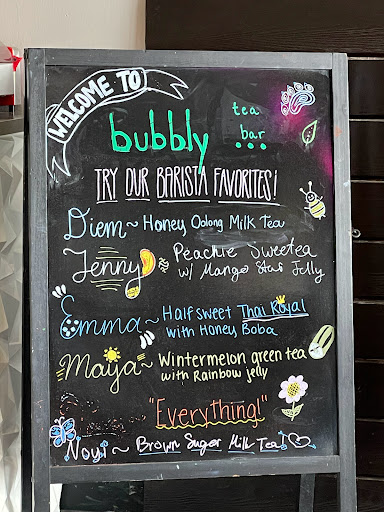 WELCOME TO
bubbly tea bar
TRY OUR BARISTA FAVORITES!
Diem ~ Honey Oolong Milk Tea
Jenny ~ Peachie Sweetea
w/ Mango Star Jelly
Emma ~ Half sweet Thai Royal
with Honey Boba
Maya ~ Wintermelon green tea
with Rainbow jelly
"Everything!"
Noyi ~ Brown Sugar Milk Tea!